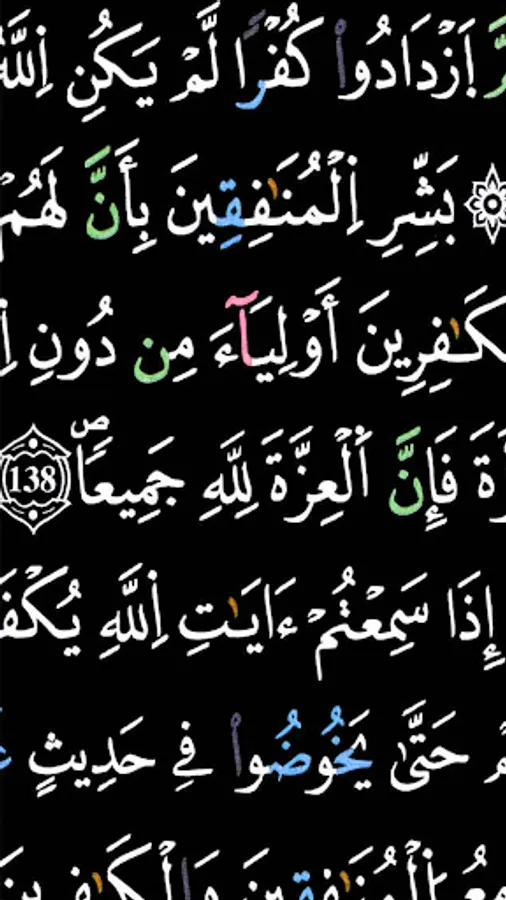 اَ۪زْدَادُوا۟ كُفْرًا لَّمْ يَكُنِ اِ۬للَّهُ
۞ بَشِّرِ اِ۬لْمُنَٰفِقِينَ بِأَنَّ لَهُمْ
كَٰفِرِينَ أَوْلِيَآءَ مِن دُونِ
فَإِنَّ اَ۬لْعِزَّةَ لِلهِ جَمِيعاًۖ 138
إِذَا سَمِعْتُمْ ءَايَٰتِ اِ۬للَّهِ يُكْفَ
حَتَّىٰ يَخُوضُوا۟ فِے حَدِيثٍ
اُ۬لْمُنَٰفِقِينَ وَالْكَٰفِرِينَ